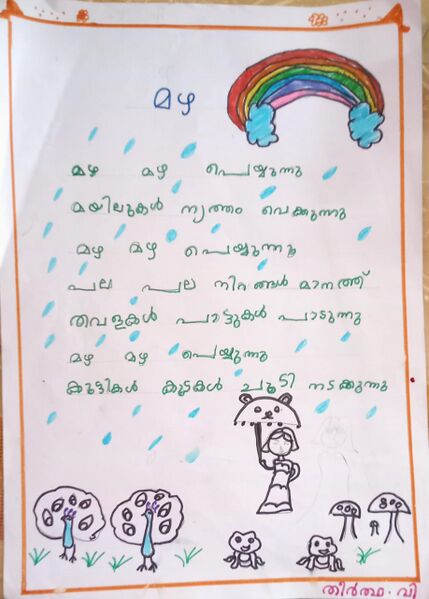 മഴ
മഴ മഴ പെയ്യുന്നു
മയിലുകൾ നൃത്തം വെക്കുന്നു
മഴ മഴ പെയ്യുന്നു
പല പല നിറങ്ങൾ മാനത്ത്
തവളകൾ പാട്ടുകൾ പാടുന്നു
മഴ മഴ പെയ്യുന്നു
കുട്ടികൾ കുടകൾ ചൂടി നടക്കുന്നു
തീർത്ഥ. വി